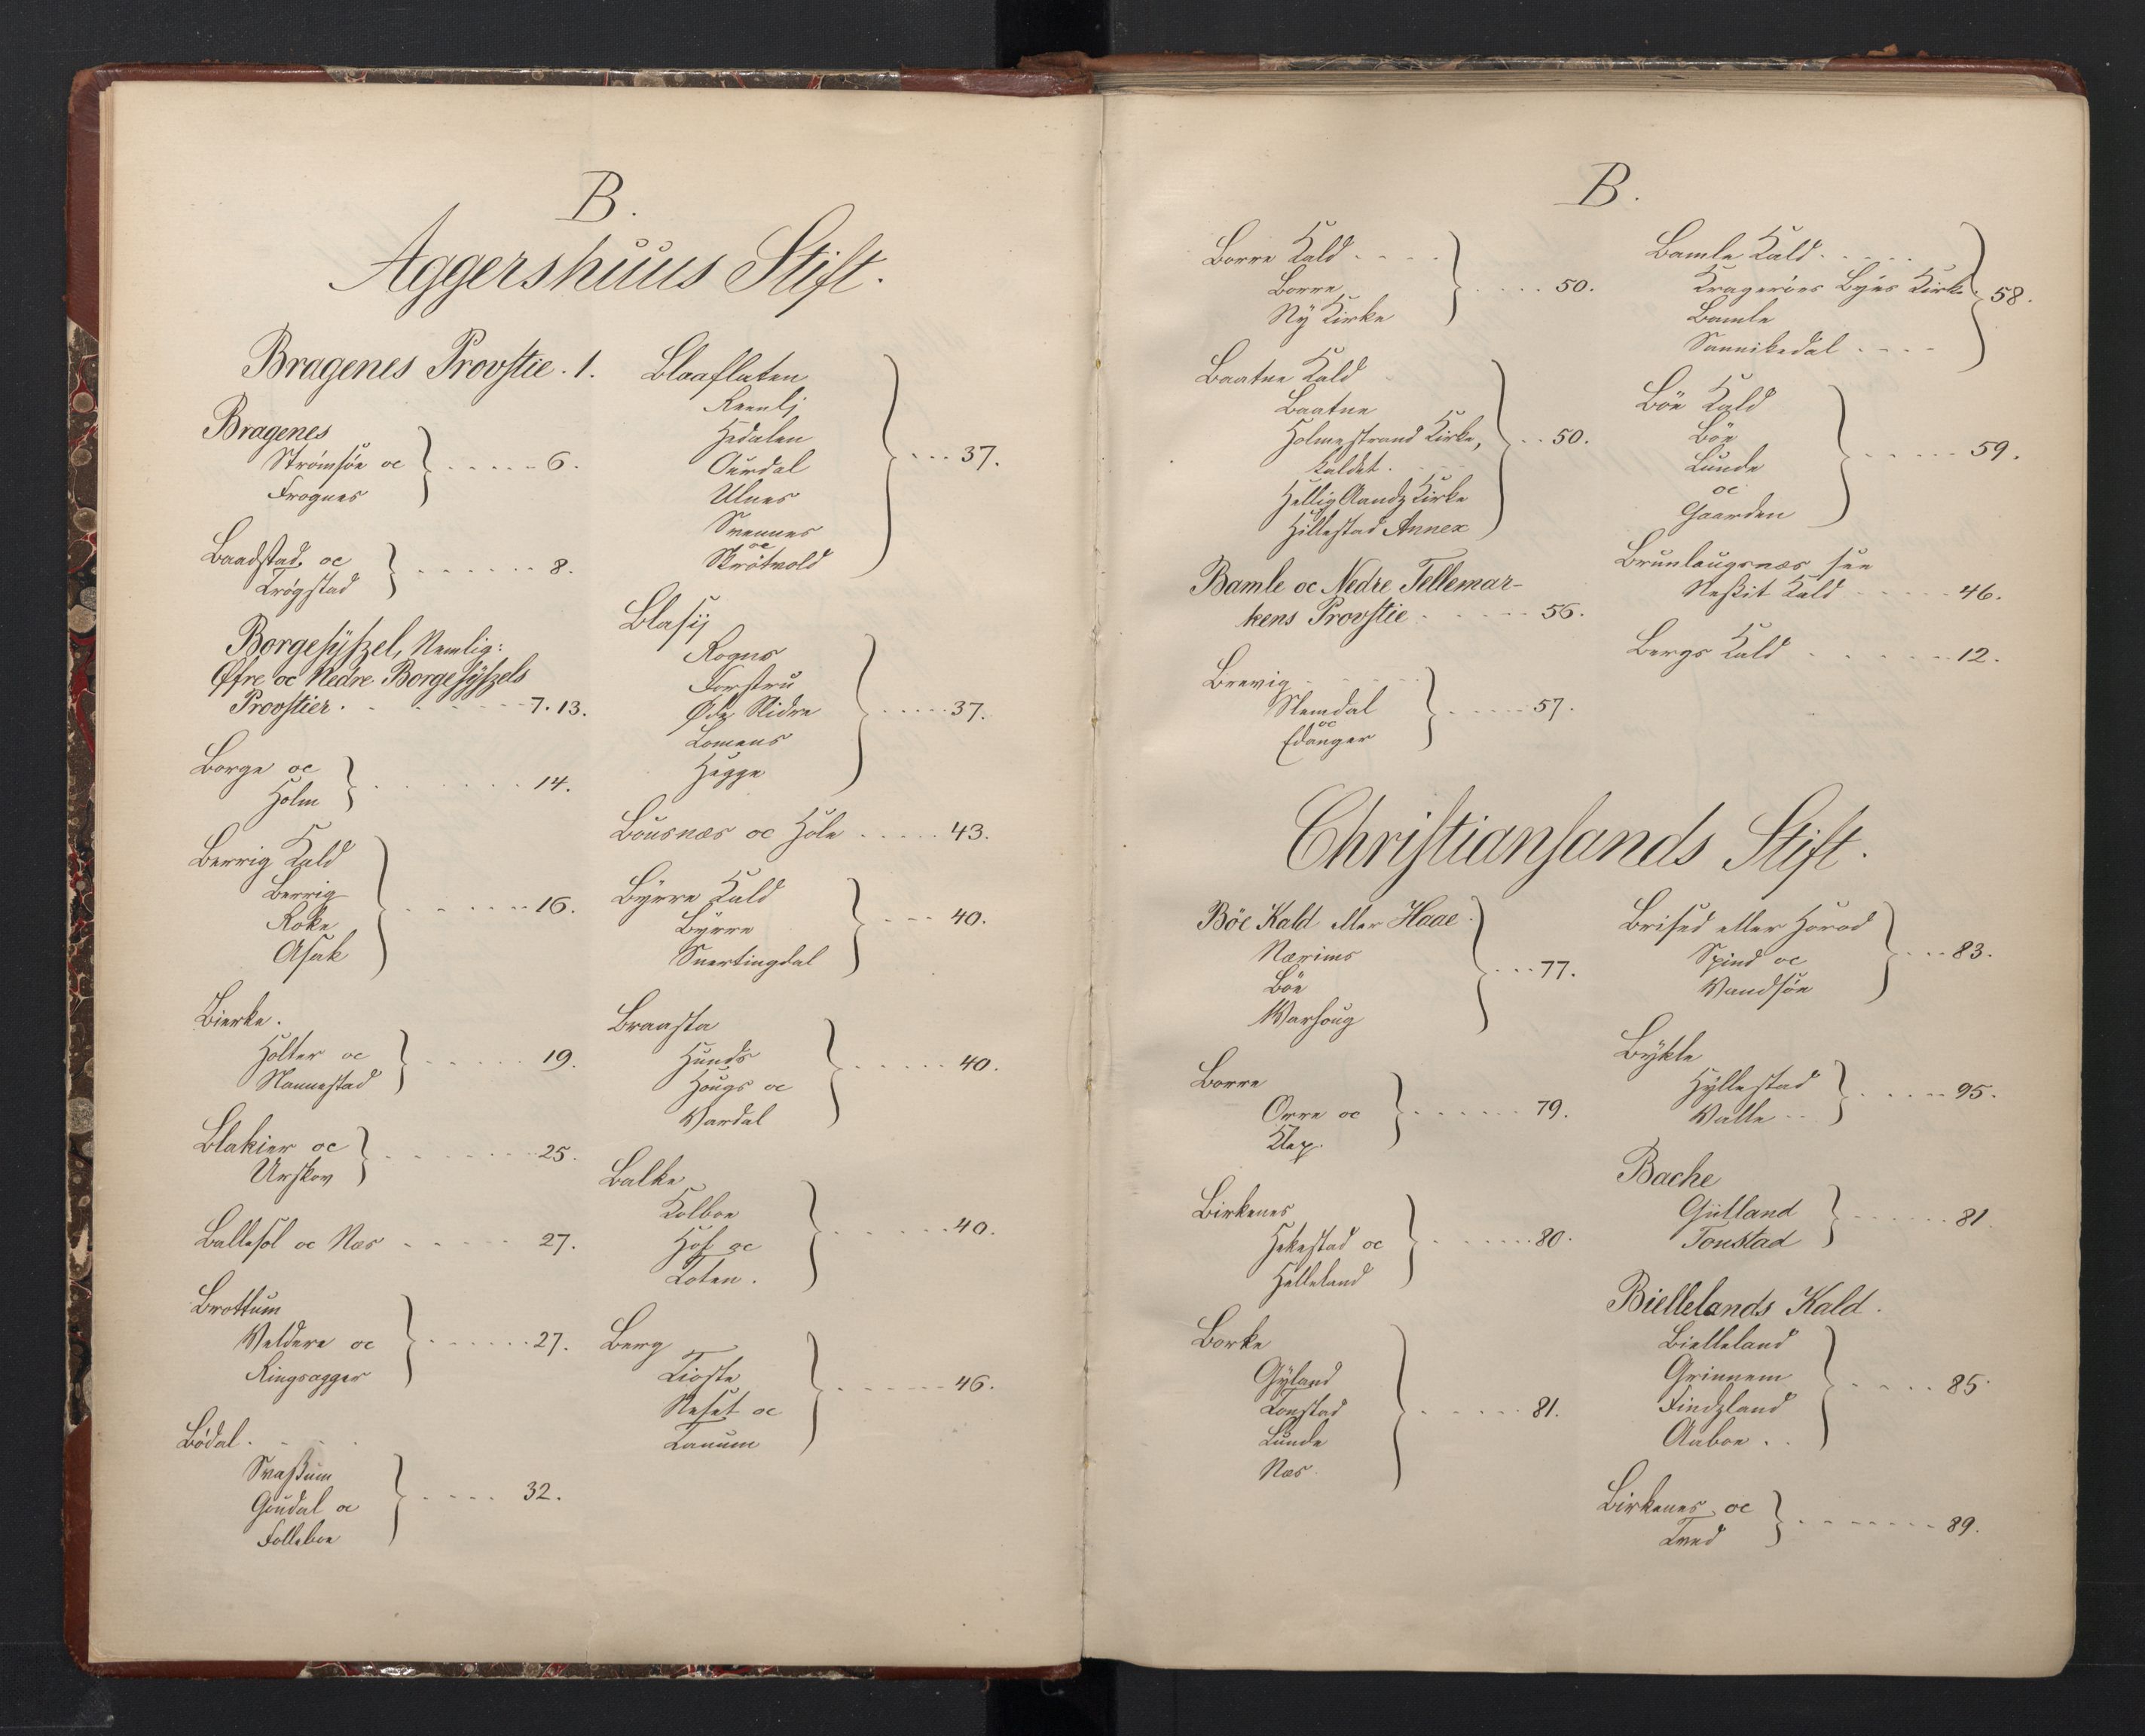 B.
Aggershuus Stift.
Bragenes Provstie. 1.
Bragenes
Strømsöe oc
Frognes
6.
Baadstad oc
Trögstad
8.
Borgesÿszel, Nemlig:
Øfre oc Nedre Borgesÿszels
Provstier. 7. 13.
Borge oc
Holm
14.
Berrig Kald
Berrig
Roke
Asak
16.
Bierke.
Holter oc
Nannestad
19.
Blakier oc
Urskov
25.
Ballesol oc Næs 27.
Brottum
Veldere oc
Ringsagger
27.
Bödal.
Svatsum
Goudal oc
Folleboe
32.
Blaaflaten
Reenlj
Hedalen
Ourdal
Ulnes
Svennes
oc
Skrötvold
37.
Blasij
Rogne
Forstru
Øde Slidre
Lomens
Hegge
37.
Bousnæs oc Hole 43.
Bÿrre Kald
Bÿrre
Snertingdal
40.
Braasta
Hunds
Hougs oc
Wardal
40.
Balke
Kolboe
Hof oc
Toten.
40.
Berg
Tioste
Neset oc
Tanum
46.
B.
Borre Kald
Borre
Nÿ Kirke
50.
Baatne Kald
Baatne
Holmestrand Kirke,
kaldet.
Hellig Aandz Kirke
Hillestad Annex
50.
Bamle oc Nedre Tellemar-
kens Provstie 56.
Brevig
Slemdal
oc
Edanger
57.
Bamle Kald.
Krageröes Bÿes Kirke
Bamle
Sannikedal
58.
Böe Kald
Böe
Lunde
oc
Gaarden
59.
Brunlaugsnæs see
Neskit Kald 46.
Bergs Kald 12.
Christiansands Stift.
Böe Kald eller Haae
Nærims
Böe
Warhoug
77.
Borre
Orre oc
Klep.
79.
Birkenes
Hekestad oc
Helleland
80.
Borke
Gÿland
Tonstad
Lunde
Næs
81.
Brised eller Horod
Spind oc
Vandsöe
83.
Bÿkle
Hÿllestad
Walle
95.
Bache
Gülland
Tonstad
81
Biellelands Kald.
Bielleland
Grinnem
Findzland
Aaboe.
85
Birkenes oc
Tved
89.